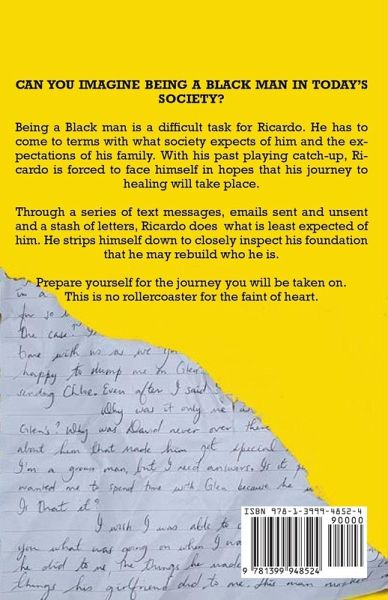 CAN YOU IMAGINE BEING A BLACK MAN IN TODAY'S
SOCIETY?
Being a Black man is a difficult task for Ricardo. He has to
come to terms with what society expects of him and the ex-
pectations of his family. With his past playing catch-up, Ri-
cardo is forced to face himself in hopes that his journey to
healing will take place.
Through a series of text messages, emails sent and unsent
and a stash of letters, Ricardo does what is least expected of
him. He strips himself down to closely inspect his foundation
that he may rebuild who he is.
Prepare yourself for the journey you will be taken on.
This is no rollercoaster for the faint of heart.
in a
for so
the case?
time with us as we
happy to dump me on Glen
sending Chloe. Even after I said
Why was it only me
Glen's? Why was David never over there
about him that made him get special
I'm a grown man, but I need answers. Is it
wanted me to spend time with Glen because he
Is that it?
I wish I was able to
you what was going on when I wa
he did to me the things he made
things his girlfriend did to me. This man
ISBN 978-1-3999-4852-4
90000
9 781399 948524